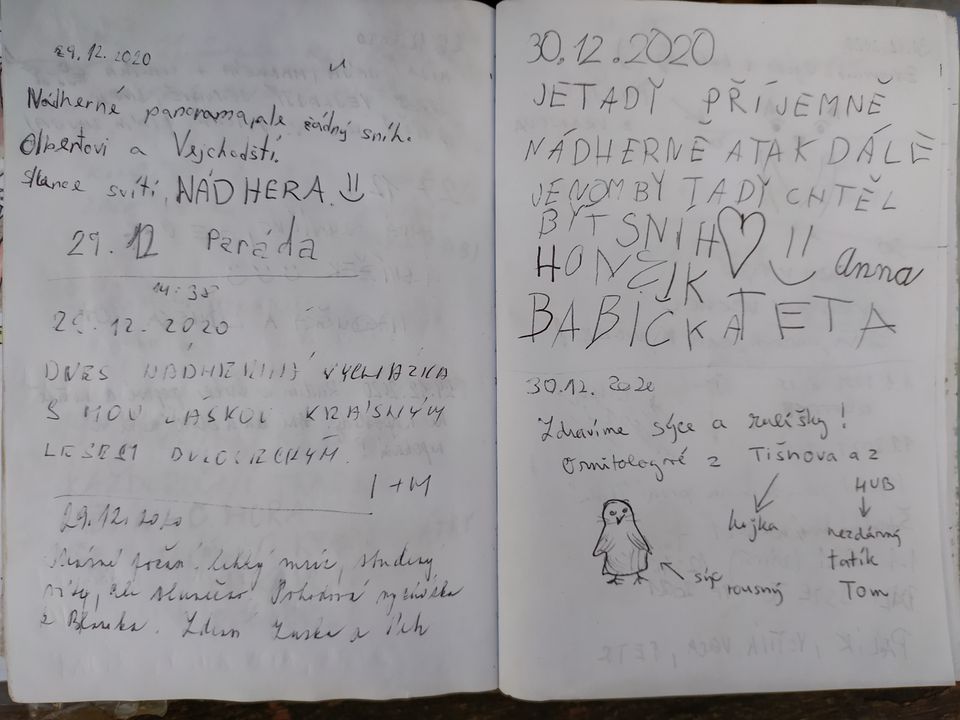 29.12.2020
Nádherné panorama, ale žádný sníh.
Albertovi a Vejchodští.
Slunce svítí, NÁDHERA.
29.12 Paráda
14:35
29.12.2020
DNES NÁDHERNÁ VYCHÁZKA
S MOU LÁSKOU KRÁSNÝM
LESEM
I+M
29.12.2020
Krásné počasí. Lehký mráz, studený
ale sluníčko. Pohodová vycházka
z Blanska. Zdeno Luska a Petr
30.12.2020
JETADY PŘÍJEMNĚ
NÁDHERNĚ ATAKDÁLE
JENOMBY TADY CHTĚL
BÝT SNÍH
HONZÍK Anna
BABIČKA TETA
30.12.2020
Zdravíme sýce a kulíšky!
Ornitologové z Tišnova a z
HUB
hojka
nezdárný
tatík
Tom
sýc
rousný